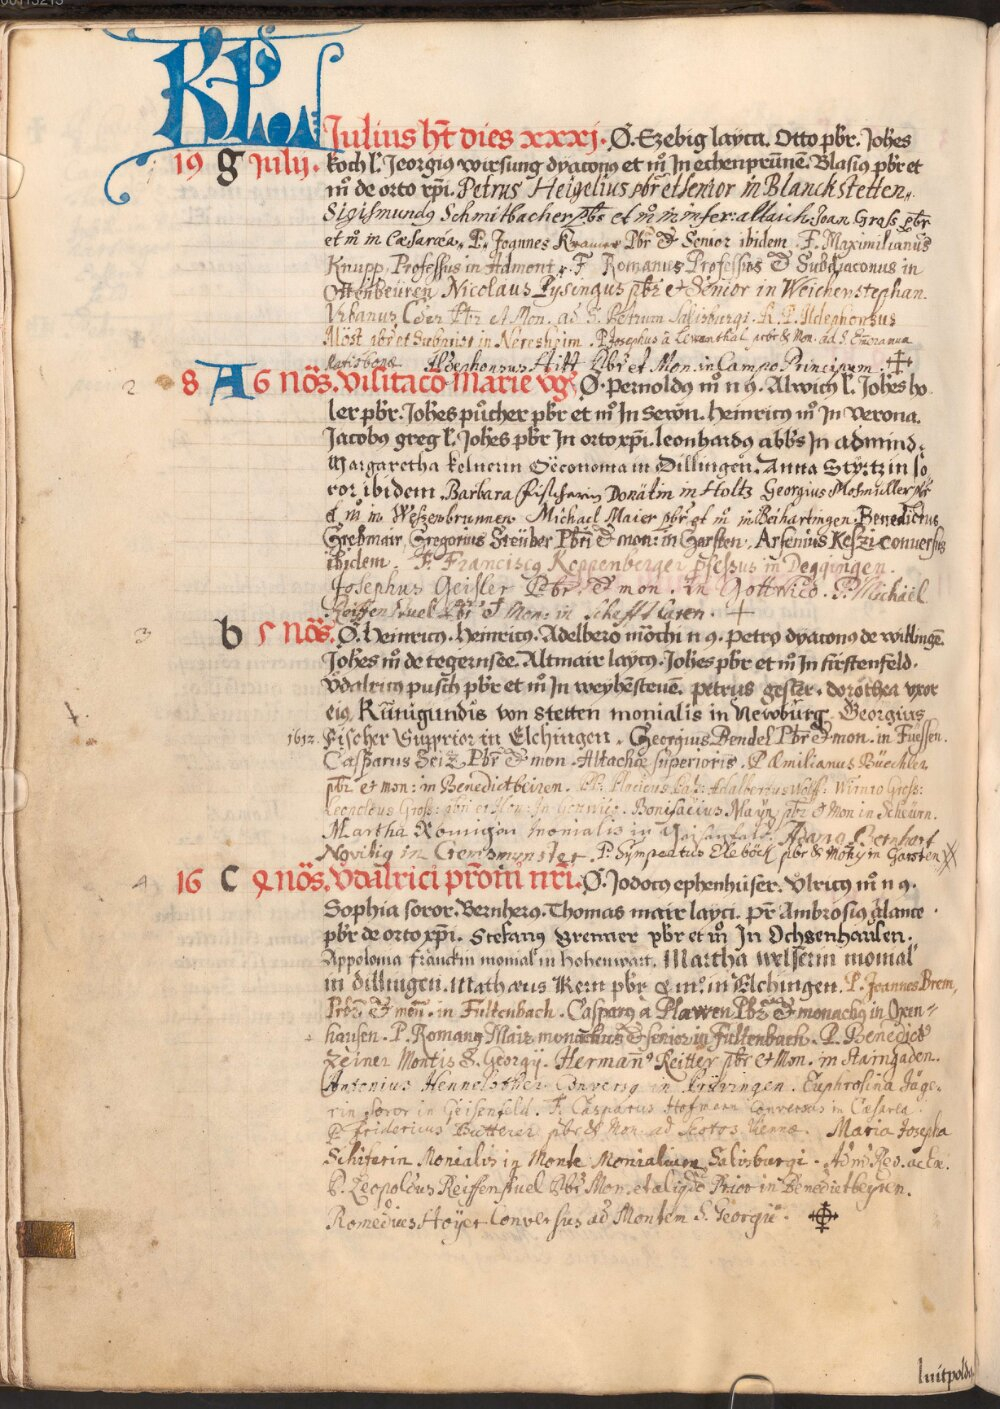 KL
Julius ht dies xxxj. Ø. Ezebig layca. Otto pbr. Johes
19 g Julij. koch l. Jeorgius wirsung dyaconus et m Jn echenprune. Blasius pbr et
m de orto xpi. Petrus Heigelius pbr et senior in Blanckstetten.
Sigismundus Schmitbacher pbr et m in infer: altaich. Joan Grass pbr
et m in Cæsarea. P. Joannes Kramer Pbr & Senior ibidem. F. Maximilianus
Knupp Professus in Admont. F. Romanus Professus & Subdiaconus in
Ottenbeüren Nicolaus Pysingus pbr et Senior in Weichenstephan.
Vrbanus Pbr et Mon. ad S. Petrum Salisburgi. R. P. Ildephonsus
pbr et Subprior in Neresheim. P. Josephus à Lewenthal pbr & Mon. ad S. Emeramum
Ratisbonæ Ildephonsus Hitt Pbr et Mon. in Campo Principum.
2 8 A 6 Nos. Visitaco Marie vgs Ø. Pernoldus m n 9. Alwich l. Johes ho
ler pbr. Johes pucher pbr et m Jn Sewn. Heinricus m Jn Verona.
Jacobus greg l. Johes pbr Jn orto xpi. leonhardus abbs Jn admind.
Margaretha kelnerin Oeconoma in Dillingen. Anna Styrtzin so
ror ibidem. Barbara Fischerin Donatin in Holtz Georgius Mosmuller pbr
et m in Weszenbrunnen Michael Maier pbr et m in Beihartingen. Benedictus
Gregorius Steüber Pbri & mon: in Garsten. Arsenius Keszi conversus
ibidem. F. Franciscus Koppenberger pfessus in Deggingen.
Josephus Geisler Pbr. & mon. in Gottwico. P. Michael
Reiffenstuel Pbr & Mon: in Schefftlaren.
3 b 5 Nos. Ø. Heinricus. Heinricus. Adelbero mochi n 9. Petrus dyaconus de wiltinge.
Johes m de tegernsee. Altmair laycus. Johes pbr et m Jn fürstenfeld.
Vdalricus pusch pbr et m Jn weyhesteue. petrus gesler. dorothea vxor
eius. Künigundis von Stetten monialis in Newburg. Georgius
1612. Fischer Supprior in Elchingen. Georgius Bendel Pbr & mon. in Füessen.
Casparus Seiz Pbr & mon. Altachæ superioris. P Æmilianus Büechler
pbr et mon: in Benedictbeiren. Placidus Adalbertus Wolff: Wirnto Gross:
Leopoldus Bonifacius Mayr pbr & Mon in Scheürn.
Martha monialis in Adamus Bernhart
Novitius in Cremsmunster. P. Symperatus Eleböck pbr & Mon in Garsten
4 16 C 4 Nos. Vdalrici prom nri. Ø. Jodocus ephenhuser. Vlricus m n 9.
Sophia soror. Bernherus. Thomas mair layci. Pr Ambrosius glante
pbr de orto xpi. Stefanus Brenner pbr et m Jn Ochsenhausen.
Appolonia franckin monial in Hohenwart. Martha welserin monial
in dillingen. Mathæus Kern pbr & m. in Elchingen. P. Joannes Brem,
Pbr & mon. in Fultenbach. Casparus à Plawen Pbr & monachus in Oxen=
hausen. P. Romanus Mair monachus & senior in Fultenbach. P. Benedict
Zeiner Montis S. Georgii. Hermann Reitter pbr & Mon. in Staingaden.
Antonius Conversus in Priflingen. Euphrosina Jäge-
rin soror in Geisenfeld. F. Casparus Hofmann Conversus in Cæsarea.
P. Fridericus Butterer pbr & Mon. ad Scotos Viennæ. Maria Josepha
Schiferin Monialis in Monte Monialium Salisburgi. Adm Red. ac Ex.
P. Leopoldus Reiffenstuel Pbr Mon. et aliqdo Prior in Benedictbeyren.
Romedius Hoyer Conversus ad Montem S. Georgii.
luitpoldus